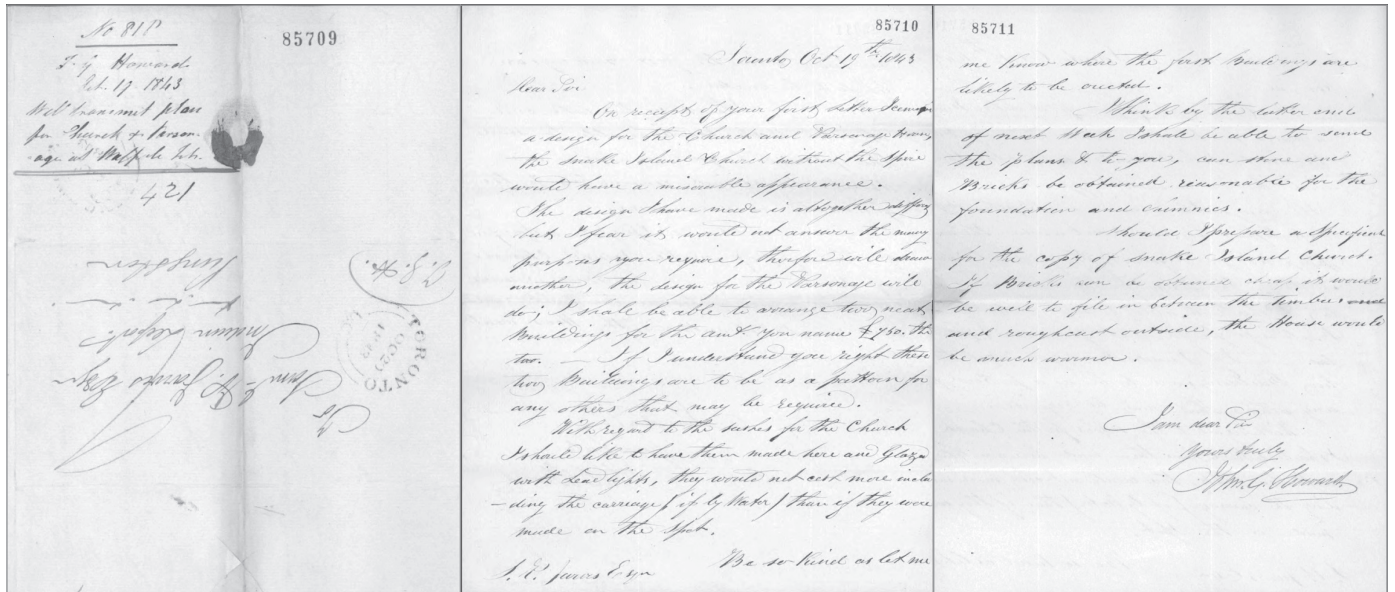 No 811
85709
J. G. Howard
Oct. 19. 1843
Will transmit plan
for Church & Parson
-age at
421
J. G. H.
TORONTO
OC 20
1843
To
Saml. P. Jarvis Esqr
Indian Dept.
Kingston
85710
Toronto Oct 19th 1843
Dear Sir
On receipt of your first Letter I
a design for the Church and Parsonage House,
the Snake Island Church without the Spire
would have a miserable appearance.
The design I have made is altogether different
but I fear it would not answer the many
purposes you require, therfore will draw
another, the design for the Parsonage will
do; I shall be able to arrange two neat
Buildings for the amt you name £750. the
two. — If I understand you right these
two Buildings are to be as a pattern for
any others that may be required.
With regard to the sashes for the Church
I should like to have them made here and Glazed
with Lead lights, they would not cost more inclu
-ding the carriage (if by Water) than if they were
made on the Spot.
Be so kind as let me
S. P. Jarvis Esqr
85711
me know where the first Buildings are
likely to be erected.
I think by the latter end
of next Week I shall be able to send
the plans & to you, can stone and
Bricks be obtained reasonable for the
foundation and chimnies.
Should I prepare a
for the copy of Snake Island Church.
If Bricks can be obtained cheap it would
be well to fill in between the timbers and
and roughcast outside, the House would
be much warmer.
I am dear Sir
Yours truly
John G. Howard